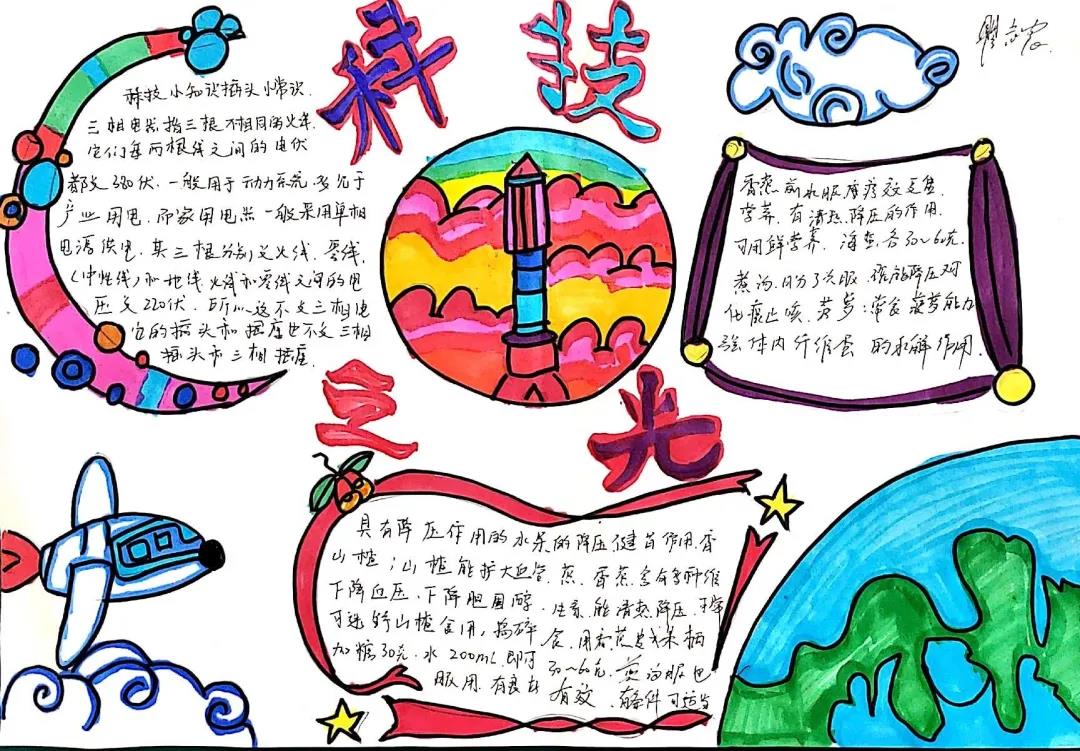 科技
之光
科技小知识插头小常识.
三相电器指三根不相同的火线.
它们每两根线之间的电伏
都是380伏. 一般用于动力系统. 多见于
产业用电. 而家用电器一般采用单相
电源供电. 其三根分别是火线. 零线.
(中性线)和地线. 火线和零线之间的电
压是220伏. 所以这不是三相电
它的插头和插座也不是三相
插头和三相插座.
香蕉 水服 疗效更佳.
有清热降压的作用.
可用鲜 海蜇 各30~60克.
煮汤. 服 降压
化痰止咳. 菠萝:常食菠萝能加
强体内纤维蛋 的水解作用.
具有降压作用的水果的降压健 作用. 香
山楂:山楂能扩大血管. 蕉. 香蕉含有多种维
下降血压. 下降胆固醇. 生素. 能清热. 降压. 
可选鲜山楂食用, 捣碎 食. 用香蕉皮或果柄
加糖30克. 水200mL. 即可 30~60克. 煎汤服也
服用. 有效. 有条件可适当